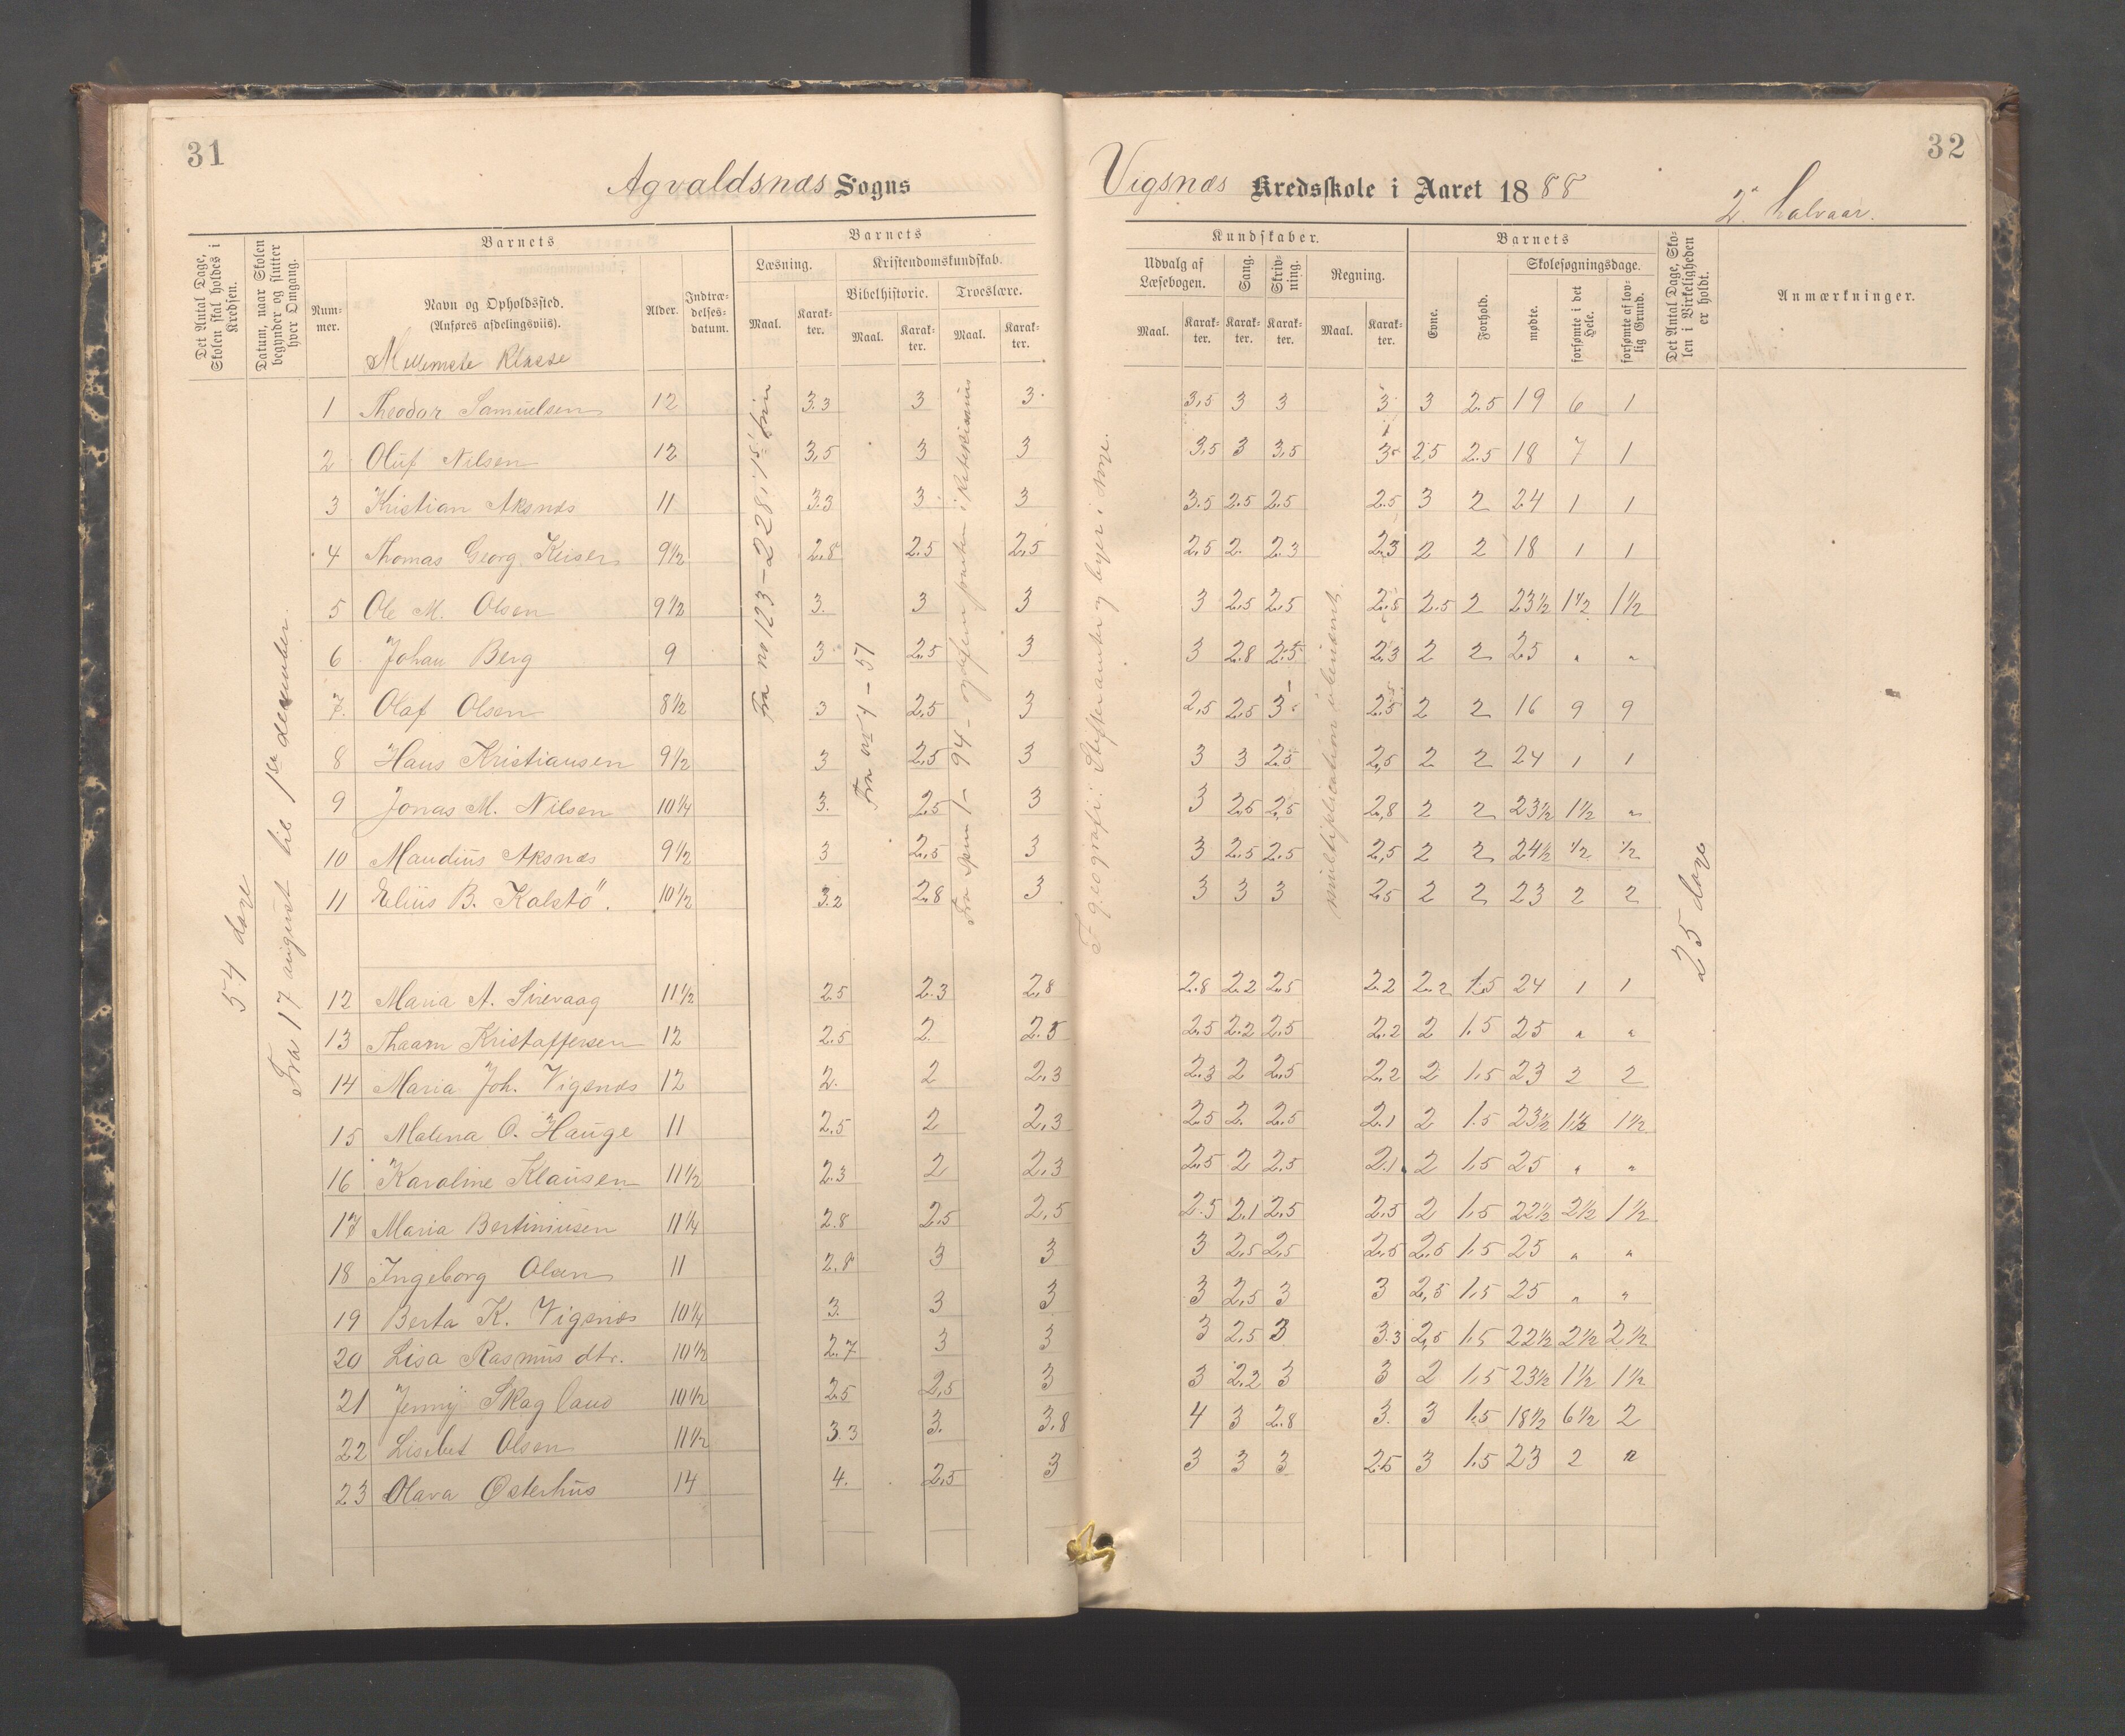 31
Agvaldsnæs Sogns
Det Antal Dage, Skolen skal holdes i Kredsen.
Datum, naar Skolen begynder og slutter hver Omgang.
Barnets
Nummer.
Navn og Opholdssted.
(Anføres afdelingsviis).
Mellemste Klasse
Alder.
Indtrædelsesdatum.
Barnets
Læsning.
Kristendomskundskab.
Bibelhistorie.
Troeslære.
Maal. Karakter. Maal. Karakter. Maal. Karakter.
54 dage
Fra 17 august til 1ste desember.
Fra no 123-228 i
Fra no 4-51
1 Theodor Samuelsen 12 3.3 3 3
2 Oluf Nilsen 12 3,5 3 3
3 Kristian Aksnæs 11 3.3 3 3
4 Thomas Georg Keiser 9½ 2,8 2.5 2,5
5 Ole M. Olsen 9½ 3. 3 3
6 Johan Berg 9 3 2.5 3
7. Olaf Olsen 8½ 3 2,5 3
8 Hans Kristiansen 9½ 3 2,5 3
9 Jonas M. Nilsen 10¼ 3. 2.5 3
10 Maudius Aksnæs 9½ 3 2,5 3
11 Elius B. Kalstö. 10½ 3.2 2.8 3
12 Maria A. Sirevaag 11½ 2.5 2.3 2,8
13 Kristoffersen 12 2.5 2. 2.5
14 Maria Joh. Vigsnæs 12 2. 2 2,3
15 Malena O. Hauge 11 2,5 2 2,3
16 Karoline Klausen 11½ 2.3 2 2,3
17 Maria Bertiniusen 11¼ 2.8 2,5 2,5
18 Ingeborg Olsen 11 2.8 3 3
19 Berta K. Vigsnæs 10¼ 3. 3 3
20 Lisa Rasmus dtr. 10½ 2.7 3 3
21 Jenny Skagland 10½ 2.5 2,5 3
22 Lisebet Olsen 11½ 3.3 3. 3,8
23 Olava Østerhus 14 4. 2,5 3
32
Vigsnæs Kredsskole i Aaret 1888
2. halvaar.
Kundskaber.
Udvalg af Læsebogen.
Sang.
Skrivning.
Regning.
Maal. Karakter. Karakter. Karakter. Maal. Karakter.
Barnets
Evne.
Forhold.
Skolesøgningsdage.
mødte.
forsømte i det Hele.
forsømte af lovlig Grund.
Det Antal Dage, Skolen i Virkeligheden er holdt.
Anmærkninger.
I geografi: Stifter amter og byer i norge.
multiplication
25 dage
3,5 3 3 3 3 2.5 19 6 1
3,5 3 3,5 3 2,5 2.5 18 7 1
3.5 2.5 2.5 2.5 3 2 24 1 1
2,5 2. 2.3 2,3 2 2 18 1 1
3 2.5 2.5 2.8 2.5 2 23½ 1½ 1½
3 2.8 2.5 2.3 2 2 25 " "
2,5 2,5 3 2.5 2 2 16 9 9
3 3 2.5 2,5 2 2 24 1 1
3 2,5 2,5 2,8 2 2 23½ 1½ "
3 2.5 2.5 2,5 2 2 24½ ½ ½
3 3 3 2.5 2 2 23 2 2
2.8 2.2 2.5 2.2 2.2 1.5 24 1 1
2,5 2.2 2,5 2.2 2 1.5 25 " "
2.3 2 2,5 2,2 2 1.5 23 2 2
2.5 2. 2,5 2.1 2 1.5 23½ 1½ 1½
2,5 2 2,5 2.1 2 1.5 25 " "
2.5 2.1 2,5 2,5 2 1.5 22½ 2½ 1½
3 2,5 2,5 2,5 2,5 1.5 25 " "
3 2,5 3 3 2,5 1.5 25 " "
3 2,5 3 3.3 2,5 1.5 22½ 2½ 2½
3 2.2 3 3 2 1,5 23½ 1½ 1½
4 3 2.8 3. 3 1.5 18½ 6½ 2
3 3 3 2.5 3 1.5 23 2 "